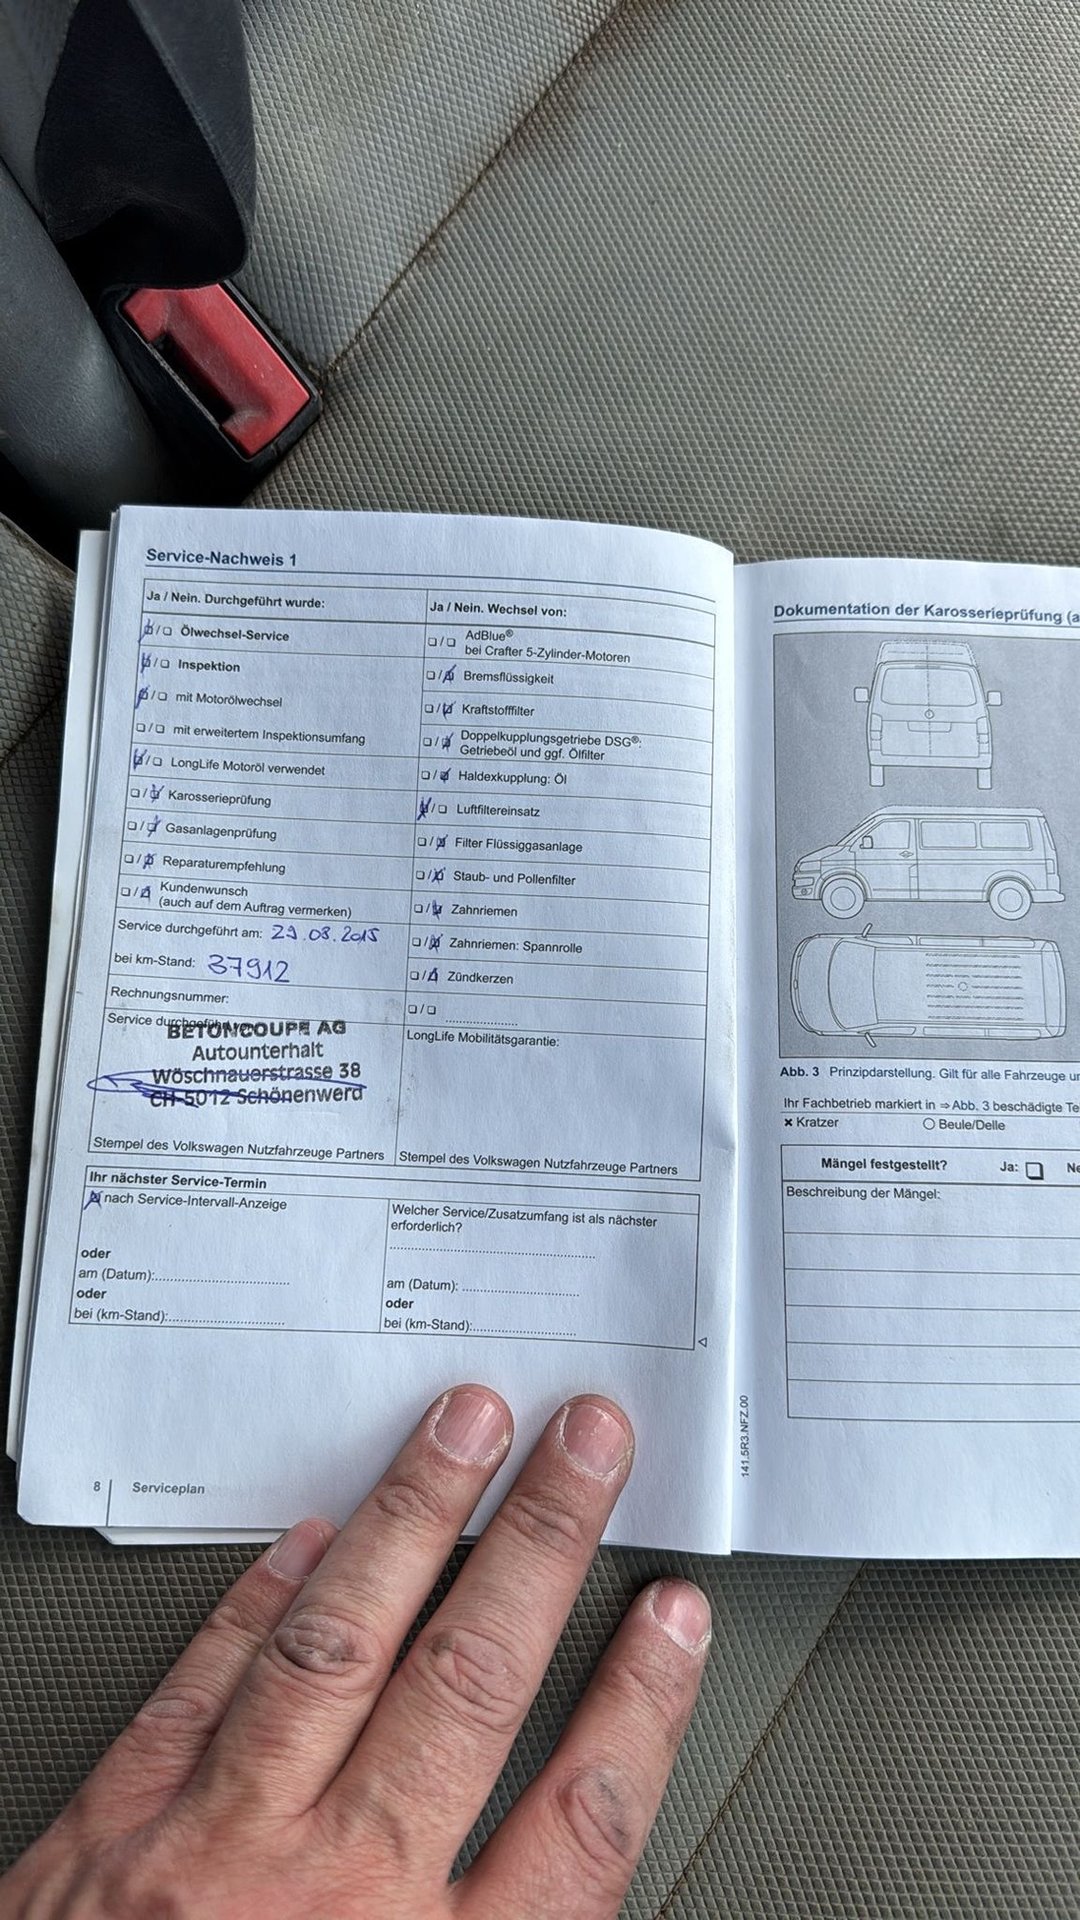 Service-Nachweis 1
Ja / Nein. Durchgeführt wurde:
Ölwechsel-Service
Inspektion
mit Motorölwechsel
mit erweitertem Inspektionsumfang
LongLife Motoröl verwendet
Karosserieprüfung
Gasanlagenprüfung
Reparaturempfehlung
Kundenwunsch
(auch auf dem Auftrag vermerken)
Service durchgeführt am: 29.08.2015
bei km-Stand: 37912
Rechnungsnummer:
Service durchgeführt
BETONCOUPE AG
Autounterhalt
Wöschnauerstrasse 38
CH-5012 Schönenwerd
Stempel des Volkswagen Nutzfahrzeuge Partners
Ja / Nein. Wechsel von:
AdBlue®
bei Crafter 5-Zylinder-Motoren
Bremsflüssigkeit
Kraftstofffilter
Doppelkupplungsgetriebe DSG®:
Getriebeöl und ggf. Ölfilter
Haldexkupplung: Öl
Luftfiltereinsatz
Filter Flüssiggasanlage
Staub- und Pollenfilter
Zahnriemen
Zahnriemen: Spannrolle
Zündkerzen
LongLife Mobilitätsgarantie:
Stempel des Volkswagen Nutzfahrzeuge Partners
Ihr nächster Service-Termin
nach Service-Intervall-Anzeige
oder
am (Datum):
oder
bei (km-Stand):
Welcher Service/Zusatzumfang ist als nächster
erforderlich?
am (Datum):
oder
bei (km-Stand):
8 Serviceplan
Dokumentation der Karosserieprüfung (a
Abb. 3 Prinzipdarstellung. Gilt für alle Fahrzeuge
Ihr Fachbetrieb markiert in ⇒ Abb. 3 beschädigte Te
× Kratzer ○ Beule/Delle
Mängel festgestellt? Ja: Ne
Beschreibung der Mängel:
141.5R3.NFZ.00